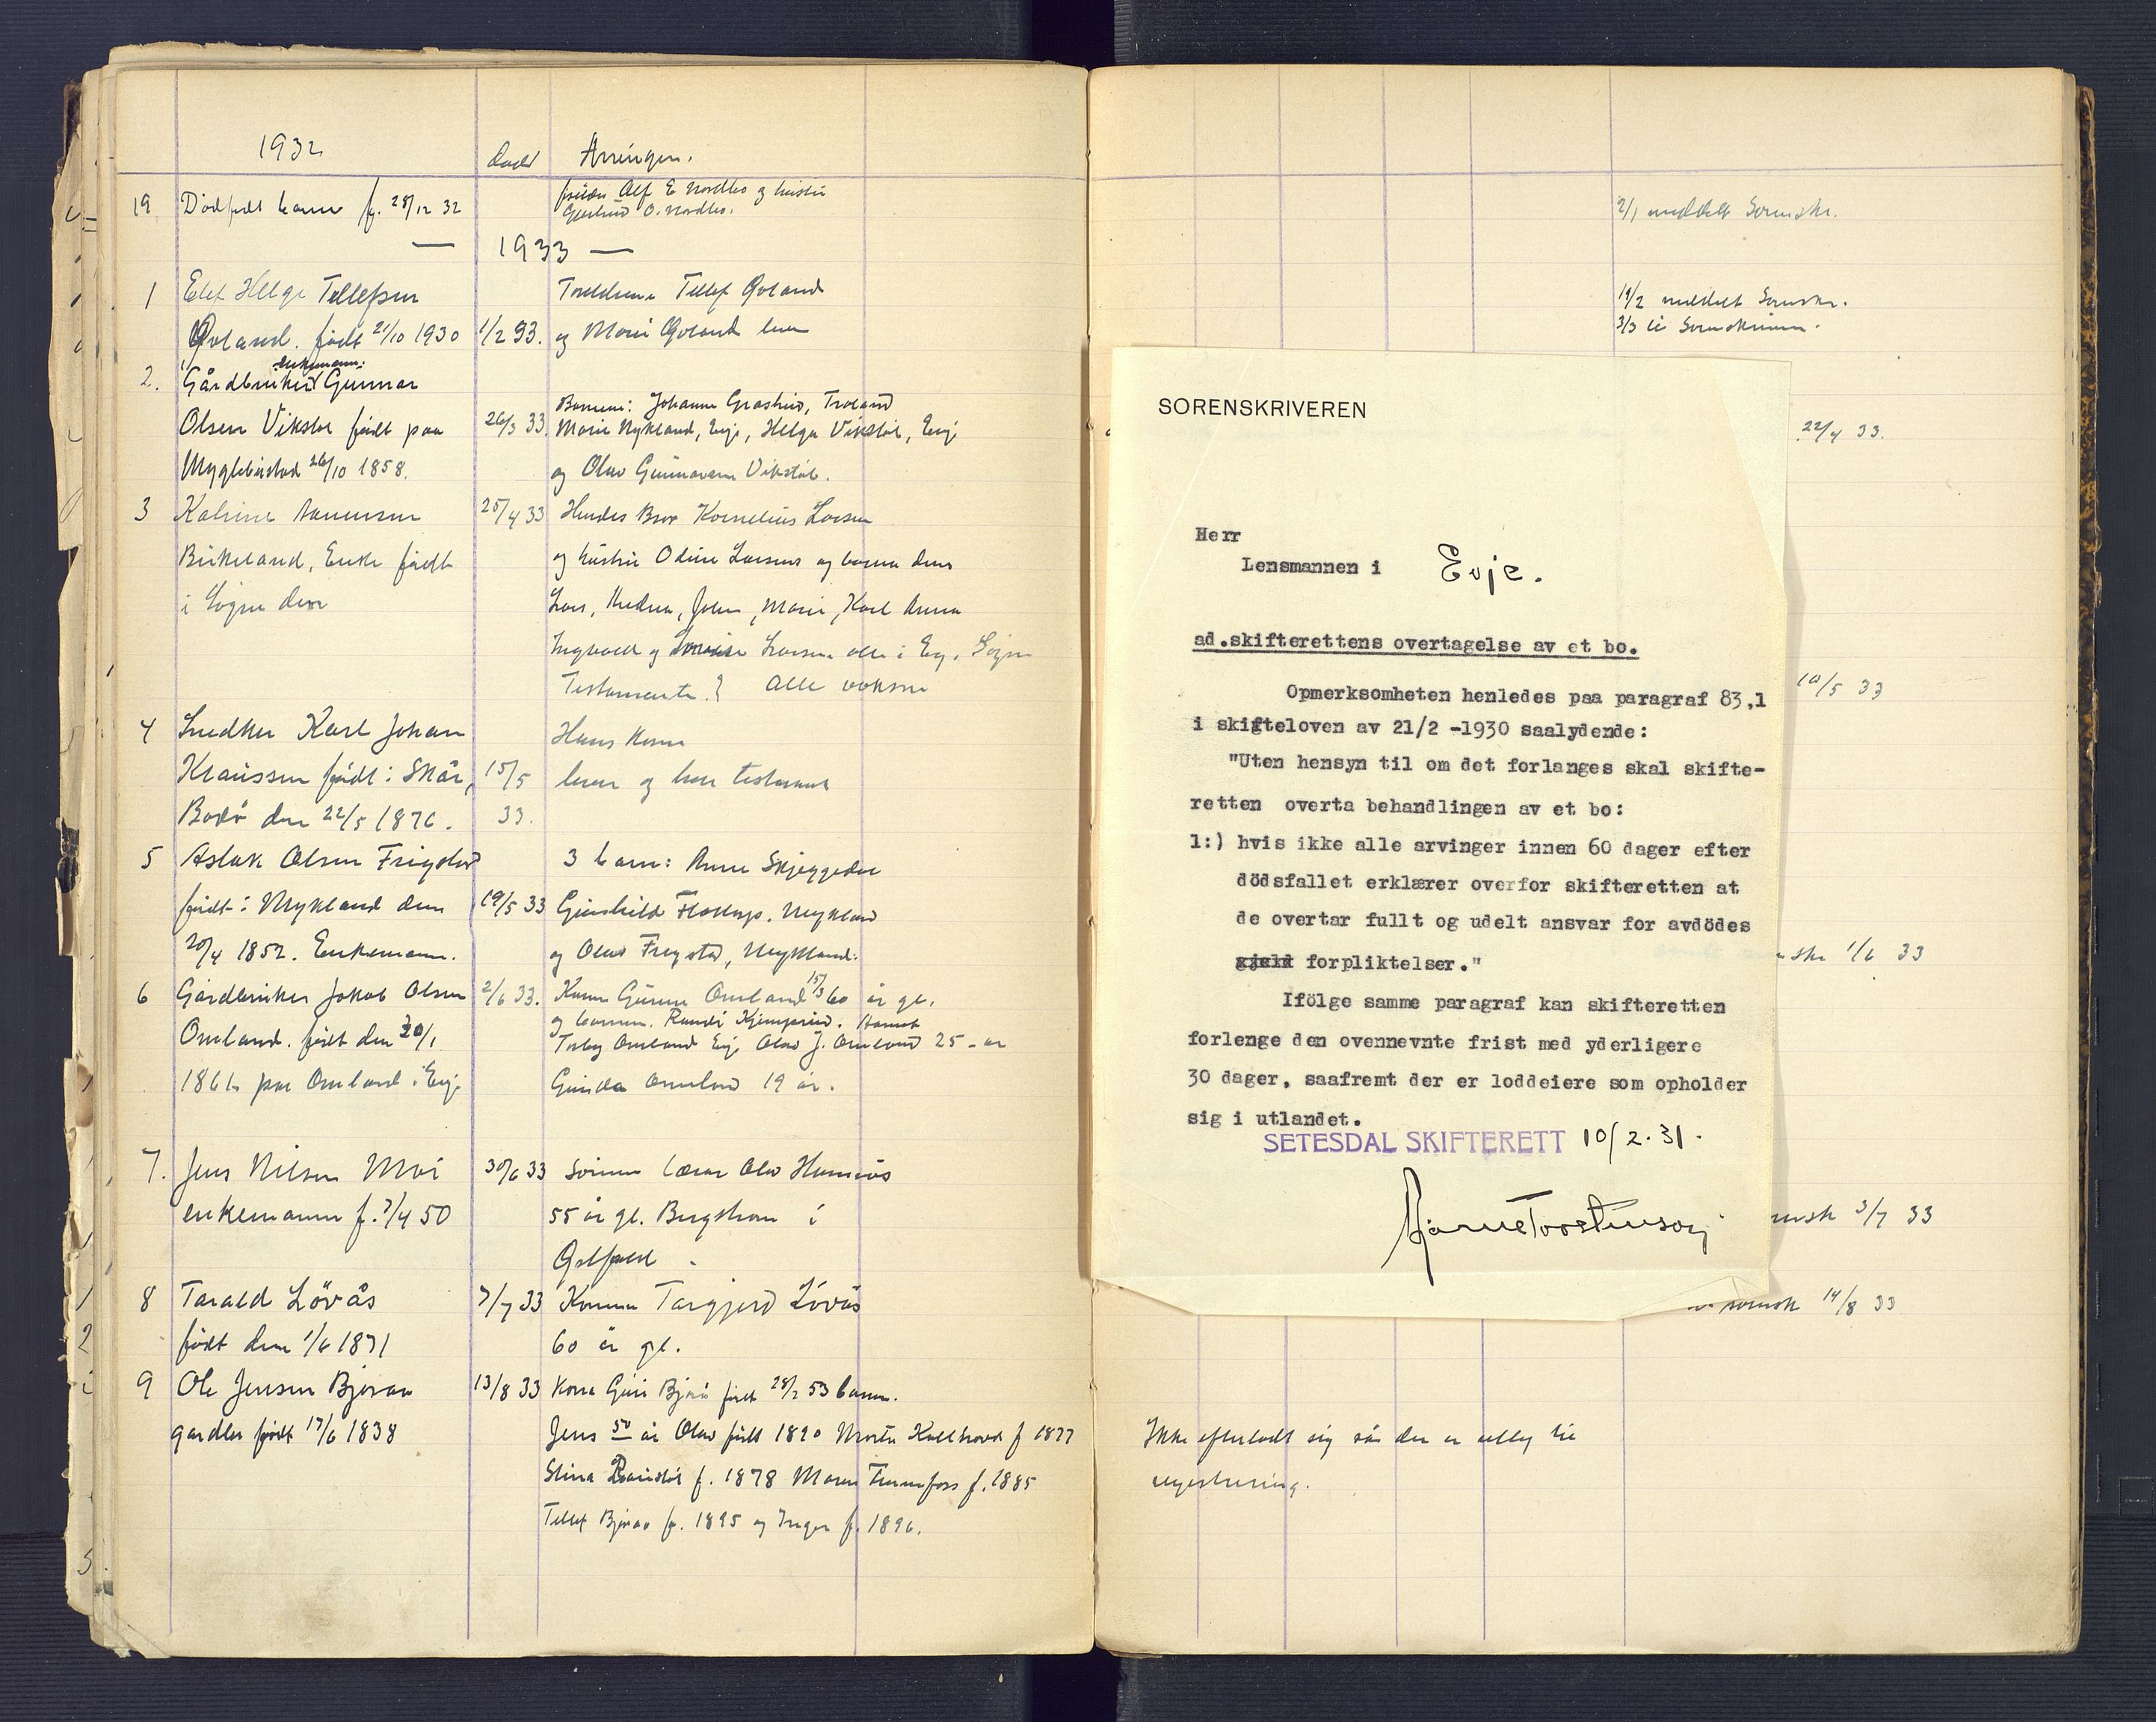 1932
død Arvinger.
19 Dødfødt barn f. 28/12 32
foreldre Alf E Nordbø og hustru
Gjertrud O. Nordbø.
2/1 meddelt Sorenskr.
— 1933 —
1 Elef Helge Tellefsen
Foreldrene Tellef
født 21/10 1930 1/2 33. og
19/2 meddelt Sorenskr.
3/3 til Sorenskriveren.
enkemann.
2. Gårdbruker Gunnar
Olsen Vikstøl født paa
26/3 33.
Barnene: Johanne Grasheid, Troland
Marie Mykland, Evje, Helga Vikstøl, Evje
22/4 33.
Myglebustad 26/10 1858.
og Olav Gunnarsen Vikstøl.
3 Katrine Aanensen
25/4 33 Hendes Bror Kornelius Larsen
Birkeland, Enke født
og hustru Odine Larsens og barna dens
i Søgne den
Lars, Andrea, Johan, Marie, Karl Anna
Ingvald og Larsen alle i Søgne
Testamente? Alle voksne
10/5 33
4 Snedker Karl Johan
Hans kone
Klaussen født i Skår,
15/5 lever og har testament
Bodø den 22/5 1876. 33.
5 Aslak Olsen Frigstad
3 barn: Anne Skjeggedal
født i Mykland den
19/5 33 Gunhild Mykland
20/4 1852. Enkemann.
og Olav Frigstad, Mykland.
1/6 33
6 Gårdbruker Jakob Olsen
2/6 33. Kone Gunne Omland 15/3 60 år gl.
og barnene. Randi
Omland. født den 20/1
Torbj Omland Evje Olav J. Omland 25 - år
1861 paa Omland i Evje
Gunda Omland 19 år.
7. Jens Nilsen Moi
30/6 33 Sønnen lærer Olav
enkemann f. 7/4 50
55 år gl. i
Østfold.
3/7 33
8 Tarald Lövås
7/7 33 Konen Targjerd Lövås
født den 1/6 1871
60 år gl.
14/8 33
9 Ole Jensen Bjoraa
13/8 33 Kona Guri Bjorå født 28/2 53 barn.
født 17/6 1838
Jens 50 år Olav født 1890 f 1877
Ikke efterladt sig så der er til
Stina f. 1878 Maren f. 1885
registrering.
Tellef Bjoraa f. 1895 og Inger f. 1896.
SORENSKRIVEREN
Herr
Lensmannen i Evje.
ad.skifterettens overtagelse av et bo.
Opmerksomheten henledes paa paragraf 83,1
i skifteloven av 21/2 -1930 saalydende:
"Uten hensyn til om det forlanges skal skifte-
retten overta behandlingen av et bo:
1:) hvis ikke alle arvinger innen 60 dager efter
dödsfallet erklærer overfor skifteretten at
de overtar fullt og udelt ansvar for avdödes
gjeld forpliktelser."
Ifölge samme paragraf kan skifteretten
forlenge den ovennevnte frist med yderligere
30 dager, saafremt der er loddeiere som opholder
sig i utlandet.
SETESDAL SKIFTERETT 10/2.31.